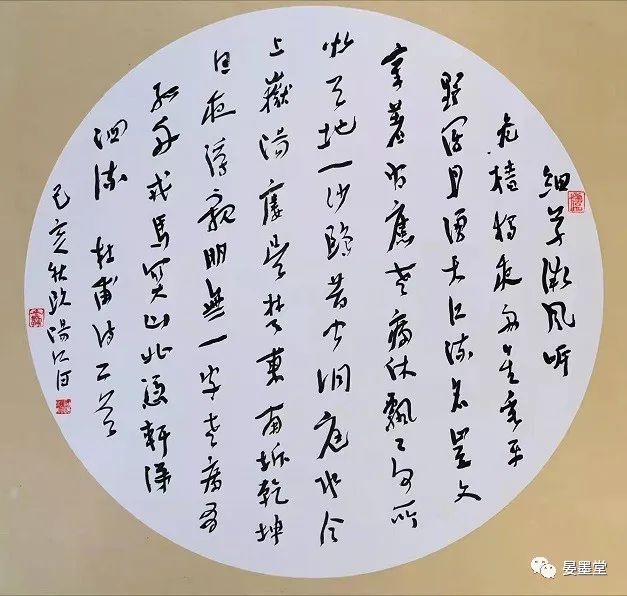 細草微風岸
危檣獨夜舟星垂平
野闊月湧大江流名豈文
章著官應老病休飄々何所
似天地一沙鷗昔聞洞庭水今
上嶽陽樓吳楚東南坼乾坤
日夜浮親朋無一字老病有
孤舟戎馬關山北憑軒涕
泗流 杜甫詩二首
己亥秋歐陽江河
晏墨堂